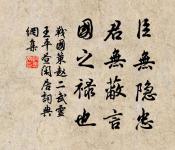 臣無隐忠
君無蔽言
國之禄也
戰國策趙二武靈
王平晝閑居詞典
網集